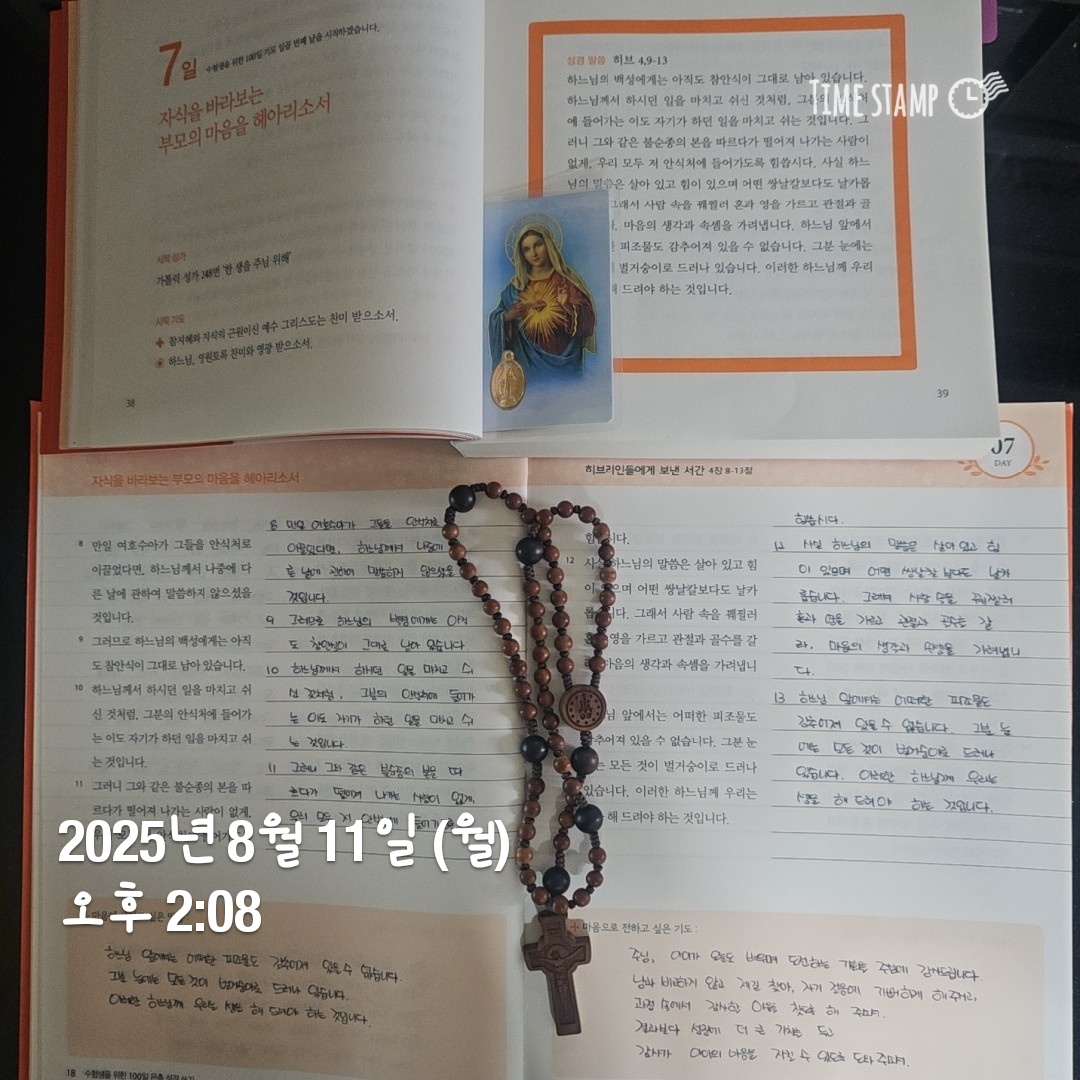 7일
수험생을 위한 100일 기도 일곱 번째 날을 시작하겠습니다.
자식을 바라보는
부모의 마음을 헤아리소서
시작 성가
가톨릭 성가 248번 '한 생을 주님 위해'
시작 기도
참지혜와 지식의 근원이신 예수 그리스도는 찬미 받으소서.
하느님, 영원토록 찬미와 영광 받으소서.
38
성경 말씀 히브 4,9-13
하느님의 백성에게는 아직도 참안식이 그대로 남아 있습니다.
하느님께서 하시던 일을 마치고 쉬신 것처럼, 그분의 안식처
에 들어가는 이도 자기가 하던 일을 마치고 쉬는 것입니다. 그
러니 그와 같은 불순종의 본을 따르다가 떨어져 나가는 사람이
없게, 우리 모두 저 안식처에 들어가도록 힘씁시다. 사실 하느
님의 말씀은 살아 있고 힘이 있으며 어떤 쌍날칼보다도 날카롭
그래서 사람 속을 꿰찔러 혼과 영을 가르고 관절과 골
마음의 생각과 속셈을 가려냅니다. 하느님 앞에서
피조물도 감추어져 있을 수 없습니다. 그분 눈에는
벌거숭이로 드러나 있습니다. 이러한 하느님께 우리
드려야 하는 것입니다.
39
TIME STAMP
07
DAY
자식을 바라보는 부모의 마음을 헤아리소서
8 만일 여호수아가 그들을 안식처로
이끌었다면, 하느님께서 나중에 다
른 날에 관하여 말씀하지 않으셨을
것입니다.
9 그러므로 하느님의 백성에게는 아직
도 참안식이 그대로 남아 있습니다.
10 하느님께서 하시던 일을 마치고 쉬
신 것처럼, 그분의 안식처에 들어가
는 이도 자기가 하던 일을 마치고 쉬
는 것입니다.
11 그러니 그와 같은 불순종의 본을 따
르다가 떨어져 나가는 사람이 없게,
8 만일 여호수아가 그들을 안식처로
이끌었다면, 하느님께서 나중에
른 날에 관하여 말씀하지 않으셨을
것입니다.
9 그러므로 하느님의 백성에게는 아직
도 참안식이 그대로 남아 있습니다
10 하느님께서 하시던 일을 마치고 쉬
신 것처럼, 그분의 안식처에 들어가
는 이도 자기가 하던 일을 마치고 쉬
는 것입니다.
11 그러니 그와 같은 불순종의 본을 따
르다가 떨어져 나가는 사람이 없게,
우리 모두 저
히브리인들에게 보낸 서간 4장 8-13절
12 사실 하느님의 말씀은 살아 있고 힘
이 있으며 어떤 쌍날칼보다도 날카
롭습니다. 그래서 사람 속을 꿰찔러
영을 가르고 관절과 골수를 갈
마음의 생각과 속셈을 가려냅니
앞에서는 어떠한 피조물도
감추어져 있을 수 없습니다. 그분 눈
는 모든 것이 벌거숭이로 드러나
있습니다. 이러한 하느님께 우리는
해 드려야 하는 것입니다.
힘씁시다.
12 사실 하느님의 말씀은 살아 있고 힘
이 있으며 어떤 쌍날칼 보다도 날카
롭습니다. 그래서 사람 속을 꿰찔러
혼과 영을 가르고 관절과 골수를 갈
라, 마음의 생각과 속셈을 가려냅니
다.
13 하느님 앞에서는 어떠한 피조물도
감추어져 있을 수 없습니다. 그분 눈
에는 모든 것이 벌거숭이로 드러나
있습니다. 이러한 하느님께 우리는
셈을 해 드려야 하는 것입니다.
2025년 8월 11일 (월)
오후 2:08
하느님 앞에서는 어떠한 피조물도 감추어져 있을 수 없습니다.
그분 눈에는 모든 것이 벌거숭이로 드러나 있습니다.
이러한 하느님께 우리는 셈을 해 드려야 하는 것입니다.
마음으로 전하고 싶은 기도 :
주님, 아이가 오늘도 배우며 도전하는 기회를 주심에 감사드립니다.
남과 비교하지 않고 제길 찾아, 자기 걸음에 기뻐하게 해주시고,
과정 속에서 감사한 이유를 찾게 해 주소서.
결과보다 성장에 더 큰 가치를 두고
감사가 아이의 마음을 지킬 수 있도록 도와주소서.
18 수험생을 위한 100일 은총 성경 쓰기